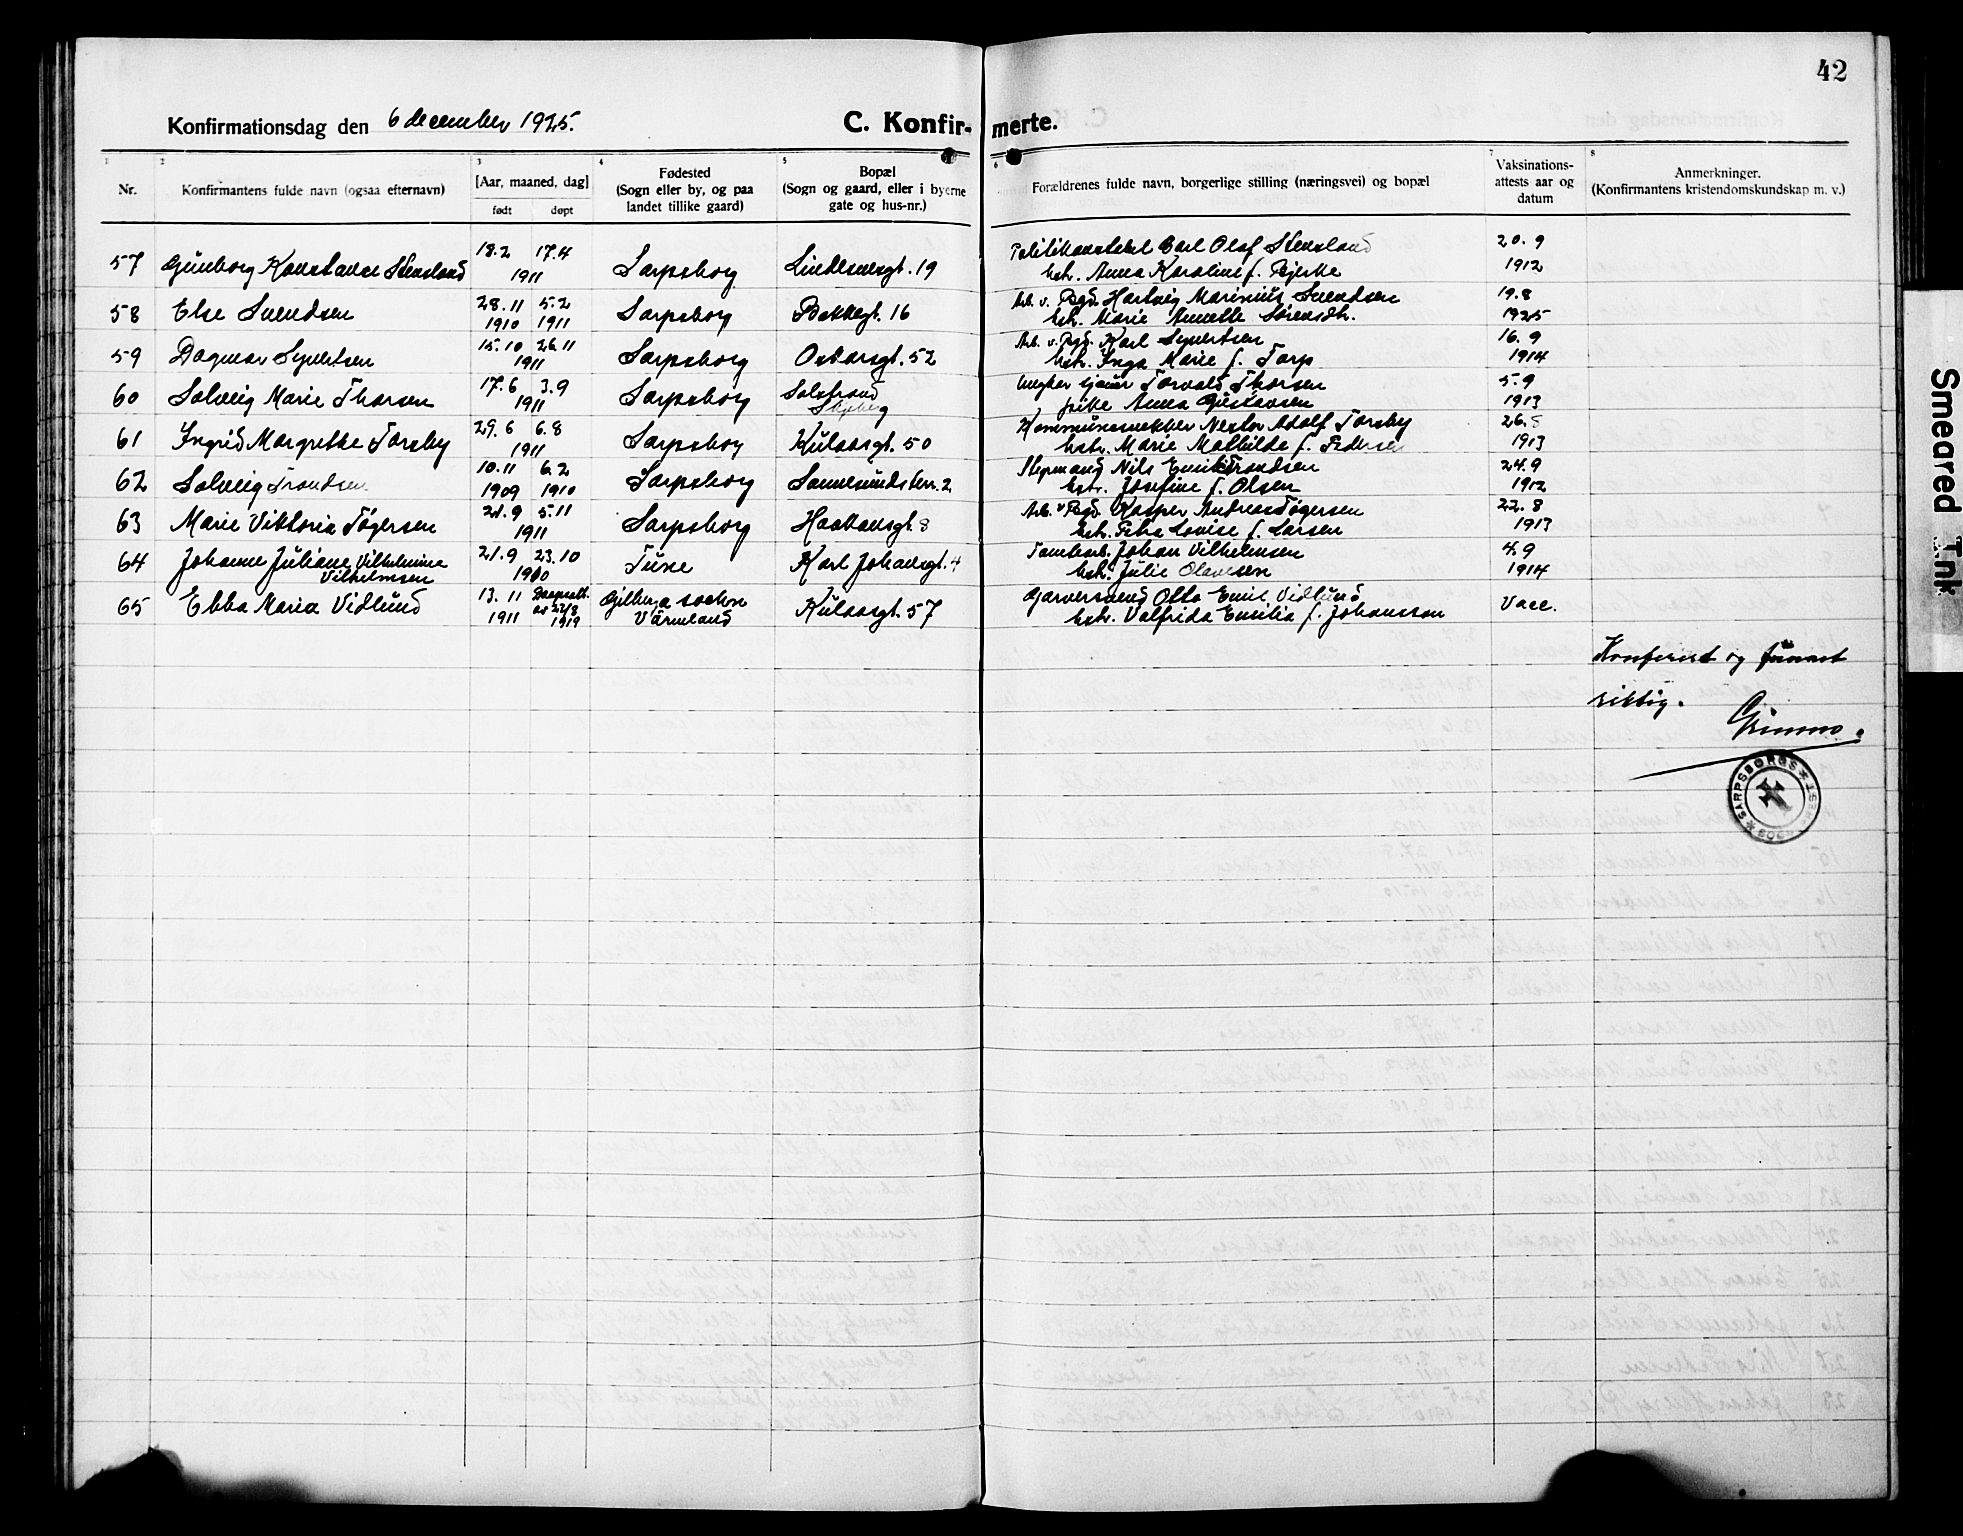 42
Konfirmationsdag den 6 december 1925.
C. Konfir- merte.
1 2 3 4 5 6 7 8
Nr.
Konfirmantens fulde navn (ogsaa efternavn)
[Aar, maaned, dag]
født døpt
Fødested
(Sogn eller by, og paa
landet tillike gaard)
Bopæl
(Sogn og gaard, eller i byerne
gate og hus-nr.)
Forældrenes fulde navn, borgerlige stilling (næringsvei) og bopæl
Vaksinations-
attests aar og
datum
Anmerkninger.
(Konfirmantens kristendomskundskap m. v.)
18.2 17.4 Politikonstabel Carl Olaf Stensland 20.9
57 Gunborg Konstanse Stensland 1911 Sarpsborg Lindemansgt. 19 hstr. Anna Karoline f. Bjerke 1912
28.11 5.2 Arb. v. Bgd. Hartvig Marinius Svendsen 19.8
58 Else Svendsen 1910 1911 Sarpsborg Bakkegt. 16 hstr. Marie Annette Sørensdtr. 1925
15.10 26.11 Arb. v. Bgd. Karl Syvertsen 16.9
59 Dagmar Syvertsen 1911 Sarpsborg Oskarsgt. 52 hstr. Inga Marie f. Tarp 1914
17.6 3.9 Solstrand Torvald Thorsen 5.9
60 Solveig Marie Thorsen 1911 Sarpsborg Skjeberg pike Anna Gustavsen 1913
29.6 6.8 Nestor Adolf Torsby 26.8
61 Ingrid Margrethe Torsby 1911 Sarpsborg Kulaasgt. 50 hstr. Marie Mathilde f. Pedersen 1913
10.11 6.2 Slepmand Nils Emil Trondsen 24.9
62 Solveig Trondsen 1909 1910 Sarpsborg Sannesundsterr. 2 hstr. Josefine f. Olsen 1912
21.9 5.11 Arb. v. Bgd. Kasper Andreas Tøgersen 22.8
63 Marie Viktoria Tøgersen 1911 Sarpsborg Haakonsgt. 8 hstr. Petra Lovise f. Larsen 1913
21.9 23.10 Johan Vilhelmsen 4.9
64 Johanne Juliane Vilhelmine
Vilhelmsen 1910 Tune Karl Johansgt. 4 hstr. Julie Olavesen 1914
13.11 Daapsatt. Gillberga socken Garversvend Otto Emil Vidlund
65 Ebba Maria Vidlund av 22/8 Kulaasgt. 57 Vacc.
1911 1919 Värmland hstr. Valfrida Emilia f. Johansson
Konferert og funnet
riktig.
Grimmo.
SARPSBORGS SOGNEPREST
Smeared Ink